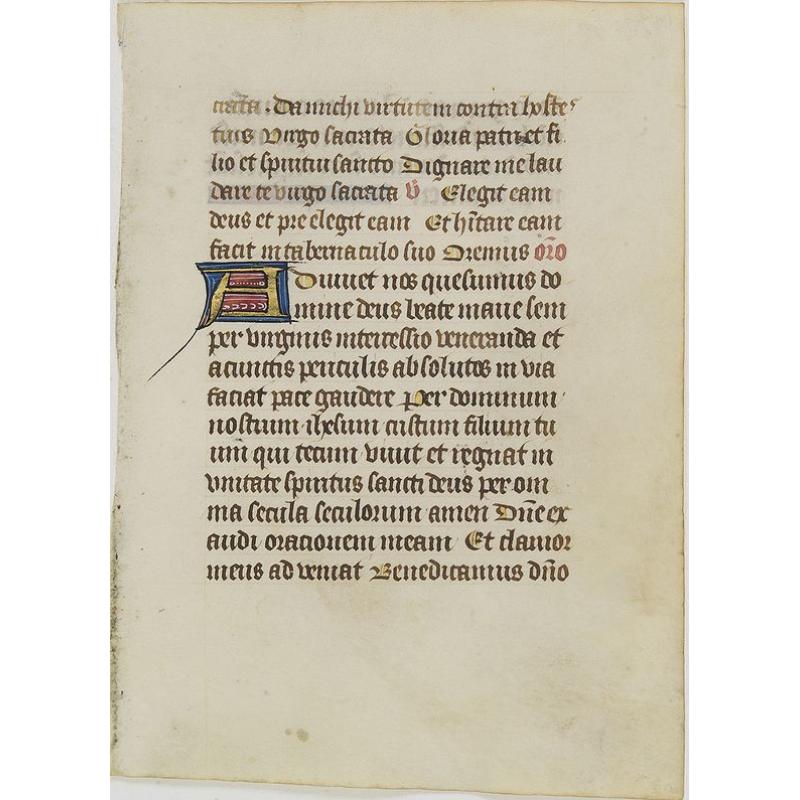 crata. Da michi virtutem contra hostes
tuos Virgo sacrata Gloria patri et fi
lio et spiritui sancto Dignare me lau
dare te virgo sacrata V Elegit eam
deus et pre elegit eam Et hitare eam
facit in tabernaculo suo Oremus oro
Adiuuet nos quesumus do
mine deus beate marie sem
per virginis intercessio veneranda et
a cunctis periculis absolutos in via
faciat pace gaudere Per dominum
nostrum ihesum cristum filium tu
um qui tecum viuit et regnat in
vnitate spiritus sancti deus per om
nia secula seculorum amen Dne ex
audi orationem meam Et clamor
meus ad veniat Benedicamus dno